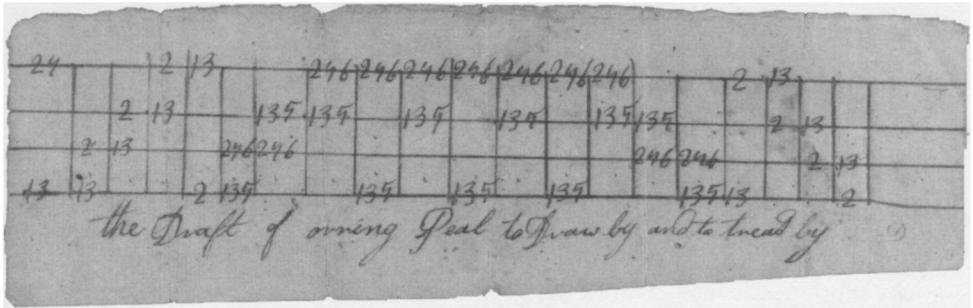 24 2 13 246 246 246 246 246 246 246 2 13
2 13 135 135 135 135 135 135 2 13
2 13 246 246 246 246 2 13
13 13 2 135 135 135 135 135 13 2
the Draft of orning Peal to Draw by and to tread by